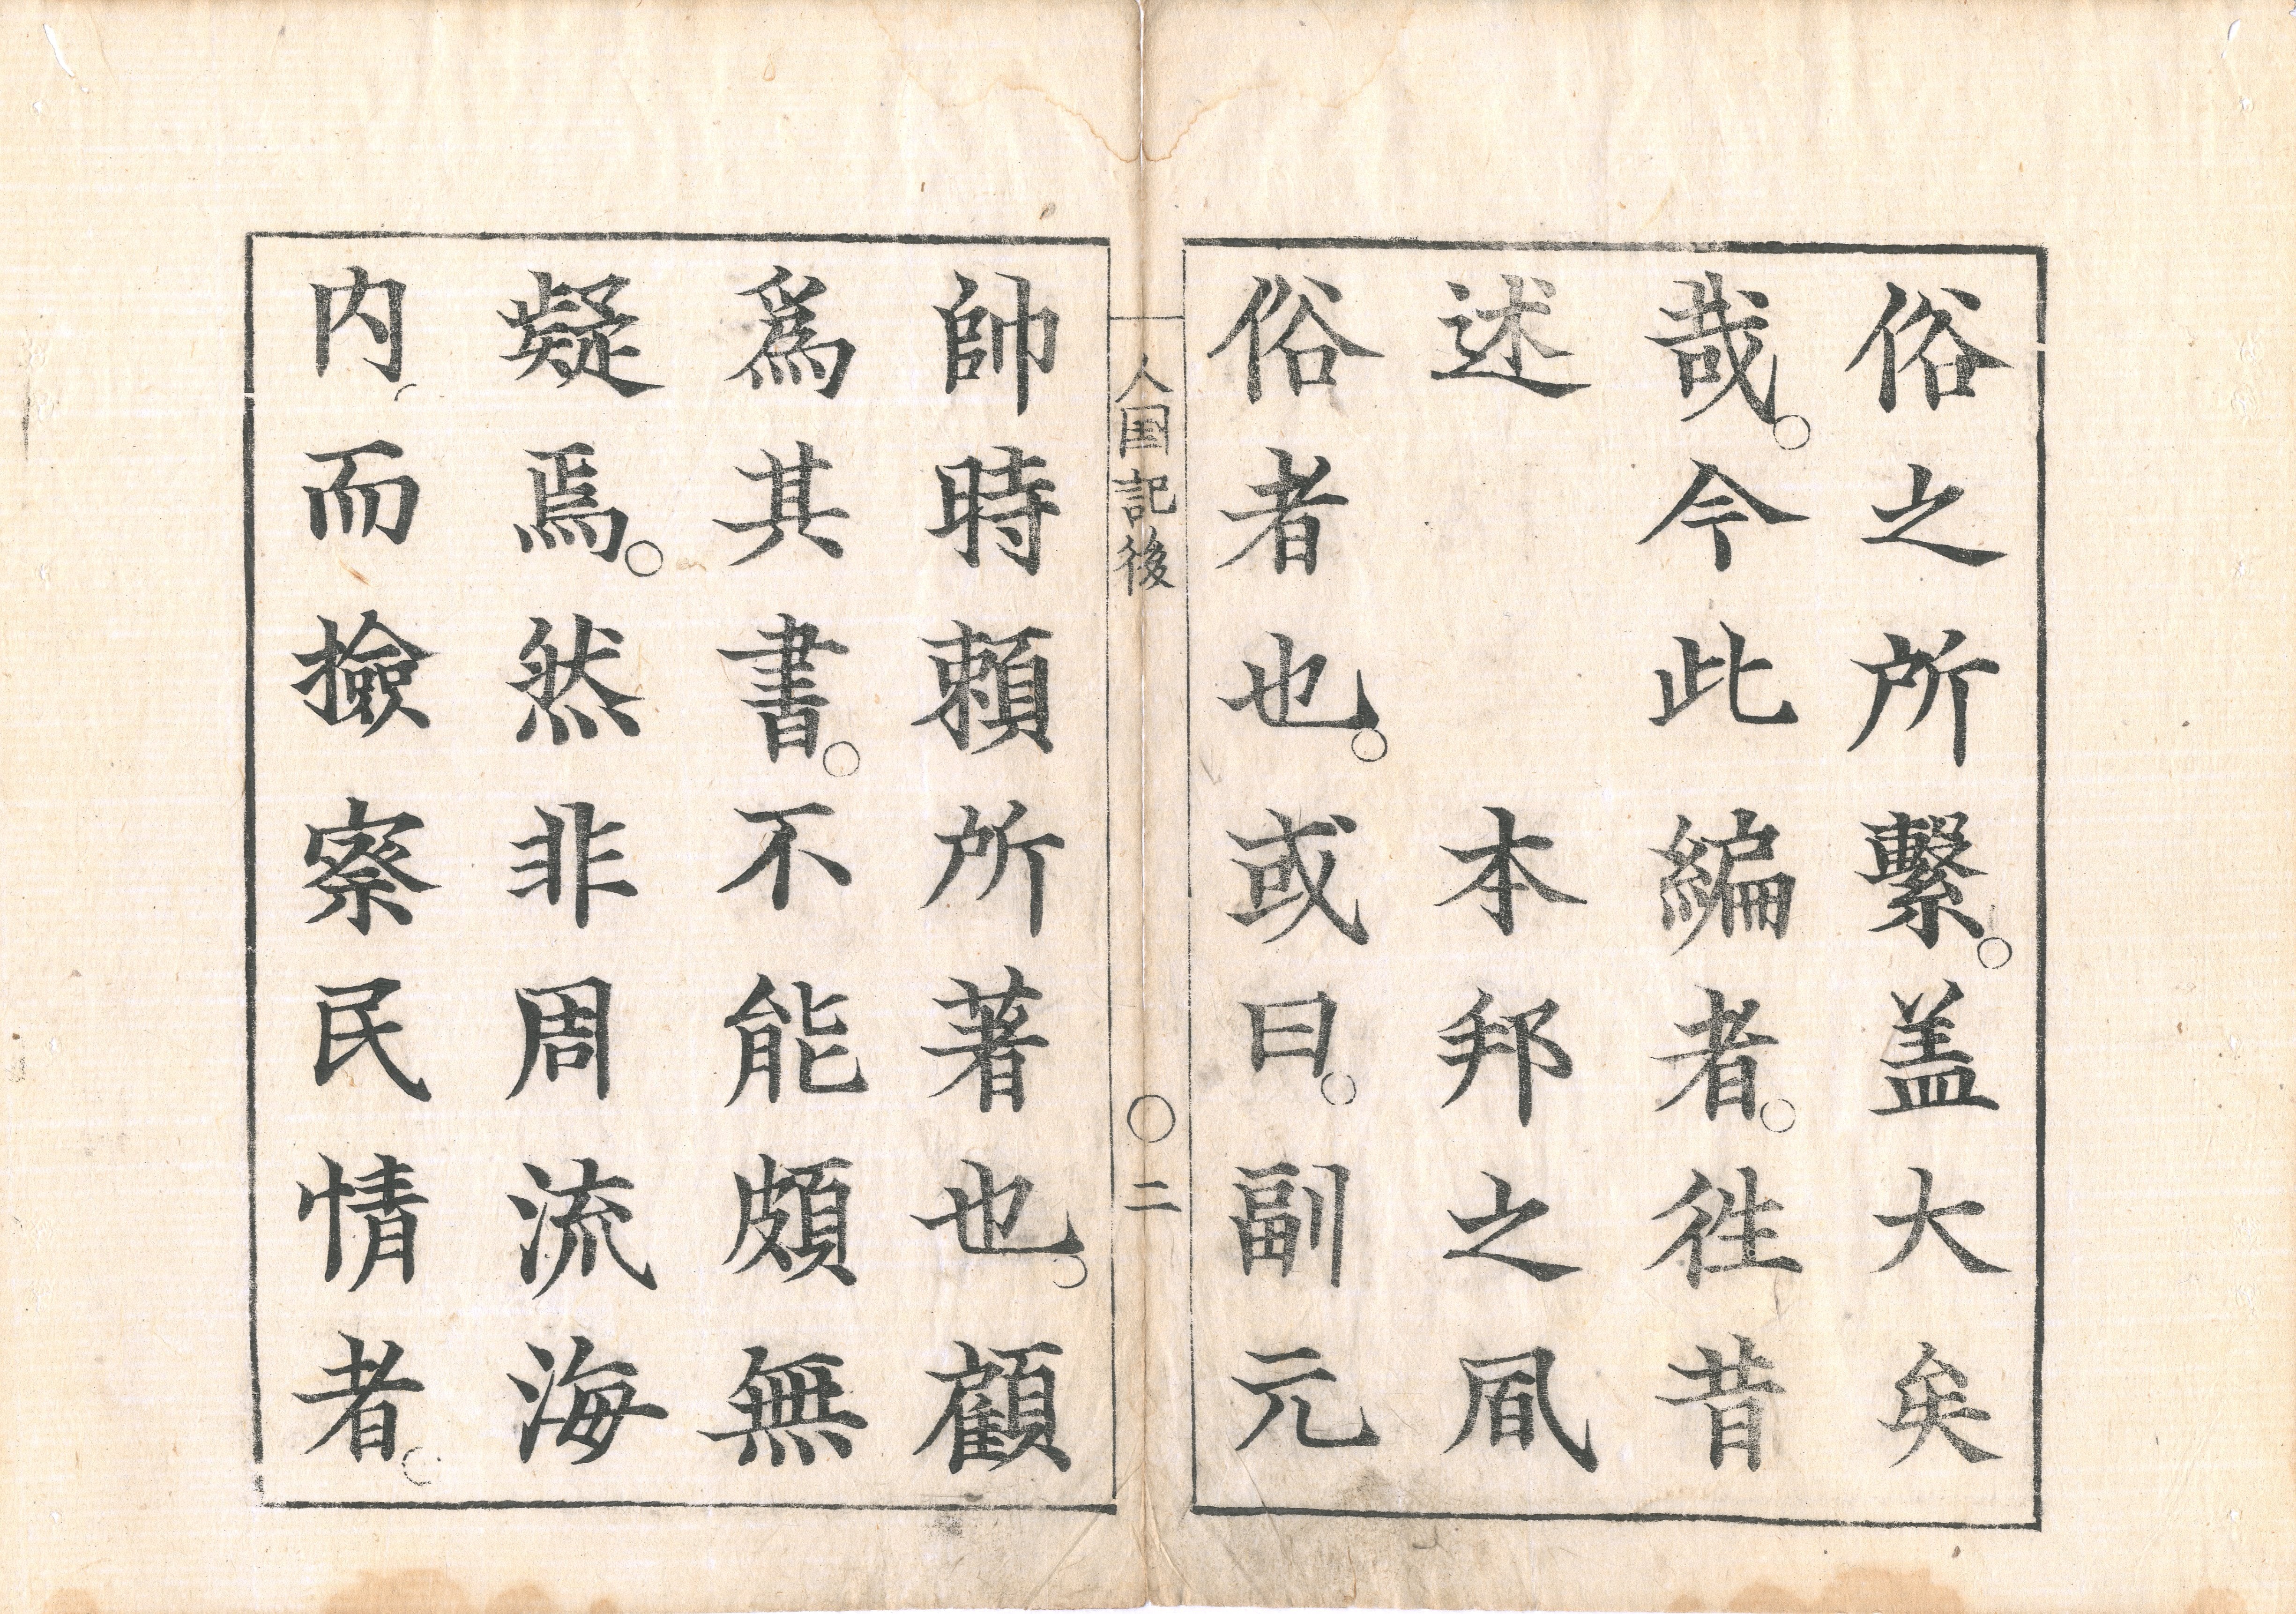 俗之所繫。盖大矣
哉。今此編者。徃昔
述　　本邦之凬
俗者也。或曰。副元
人国記後
〇二
帥時頼所著也。顧
爲其書。不能頗無
疑焉。然非周流海
内、而撿察民情者。